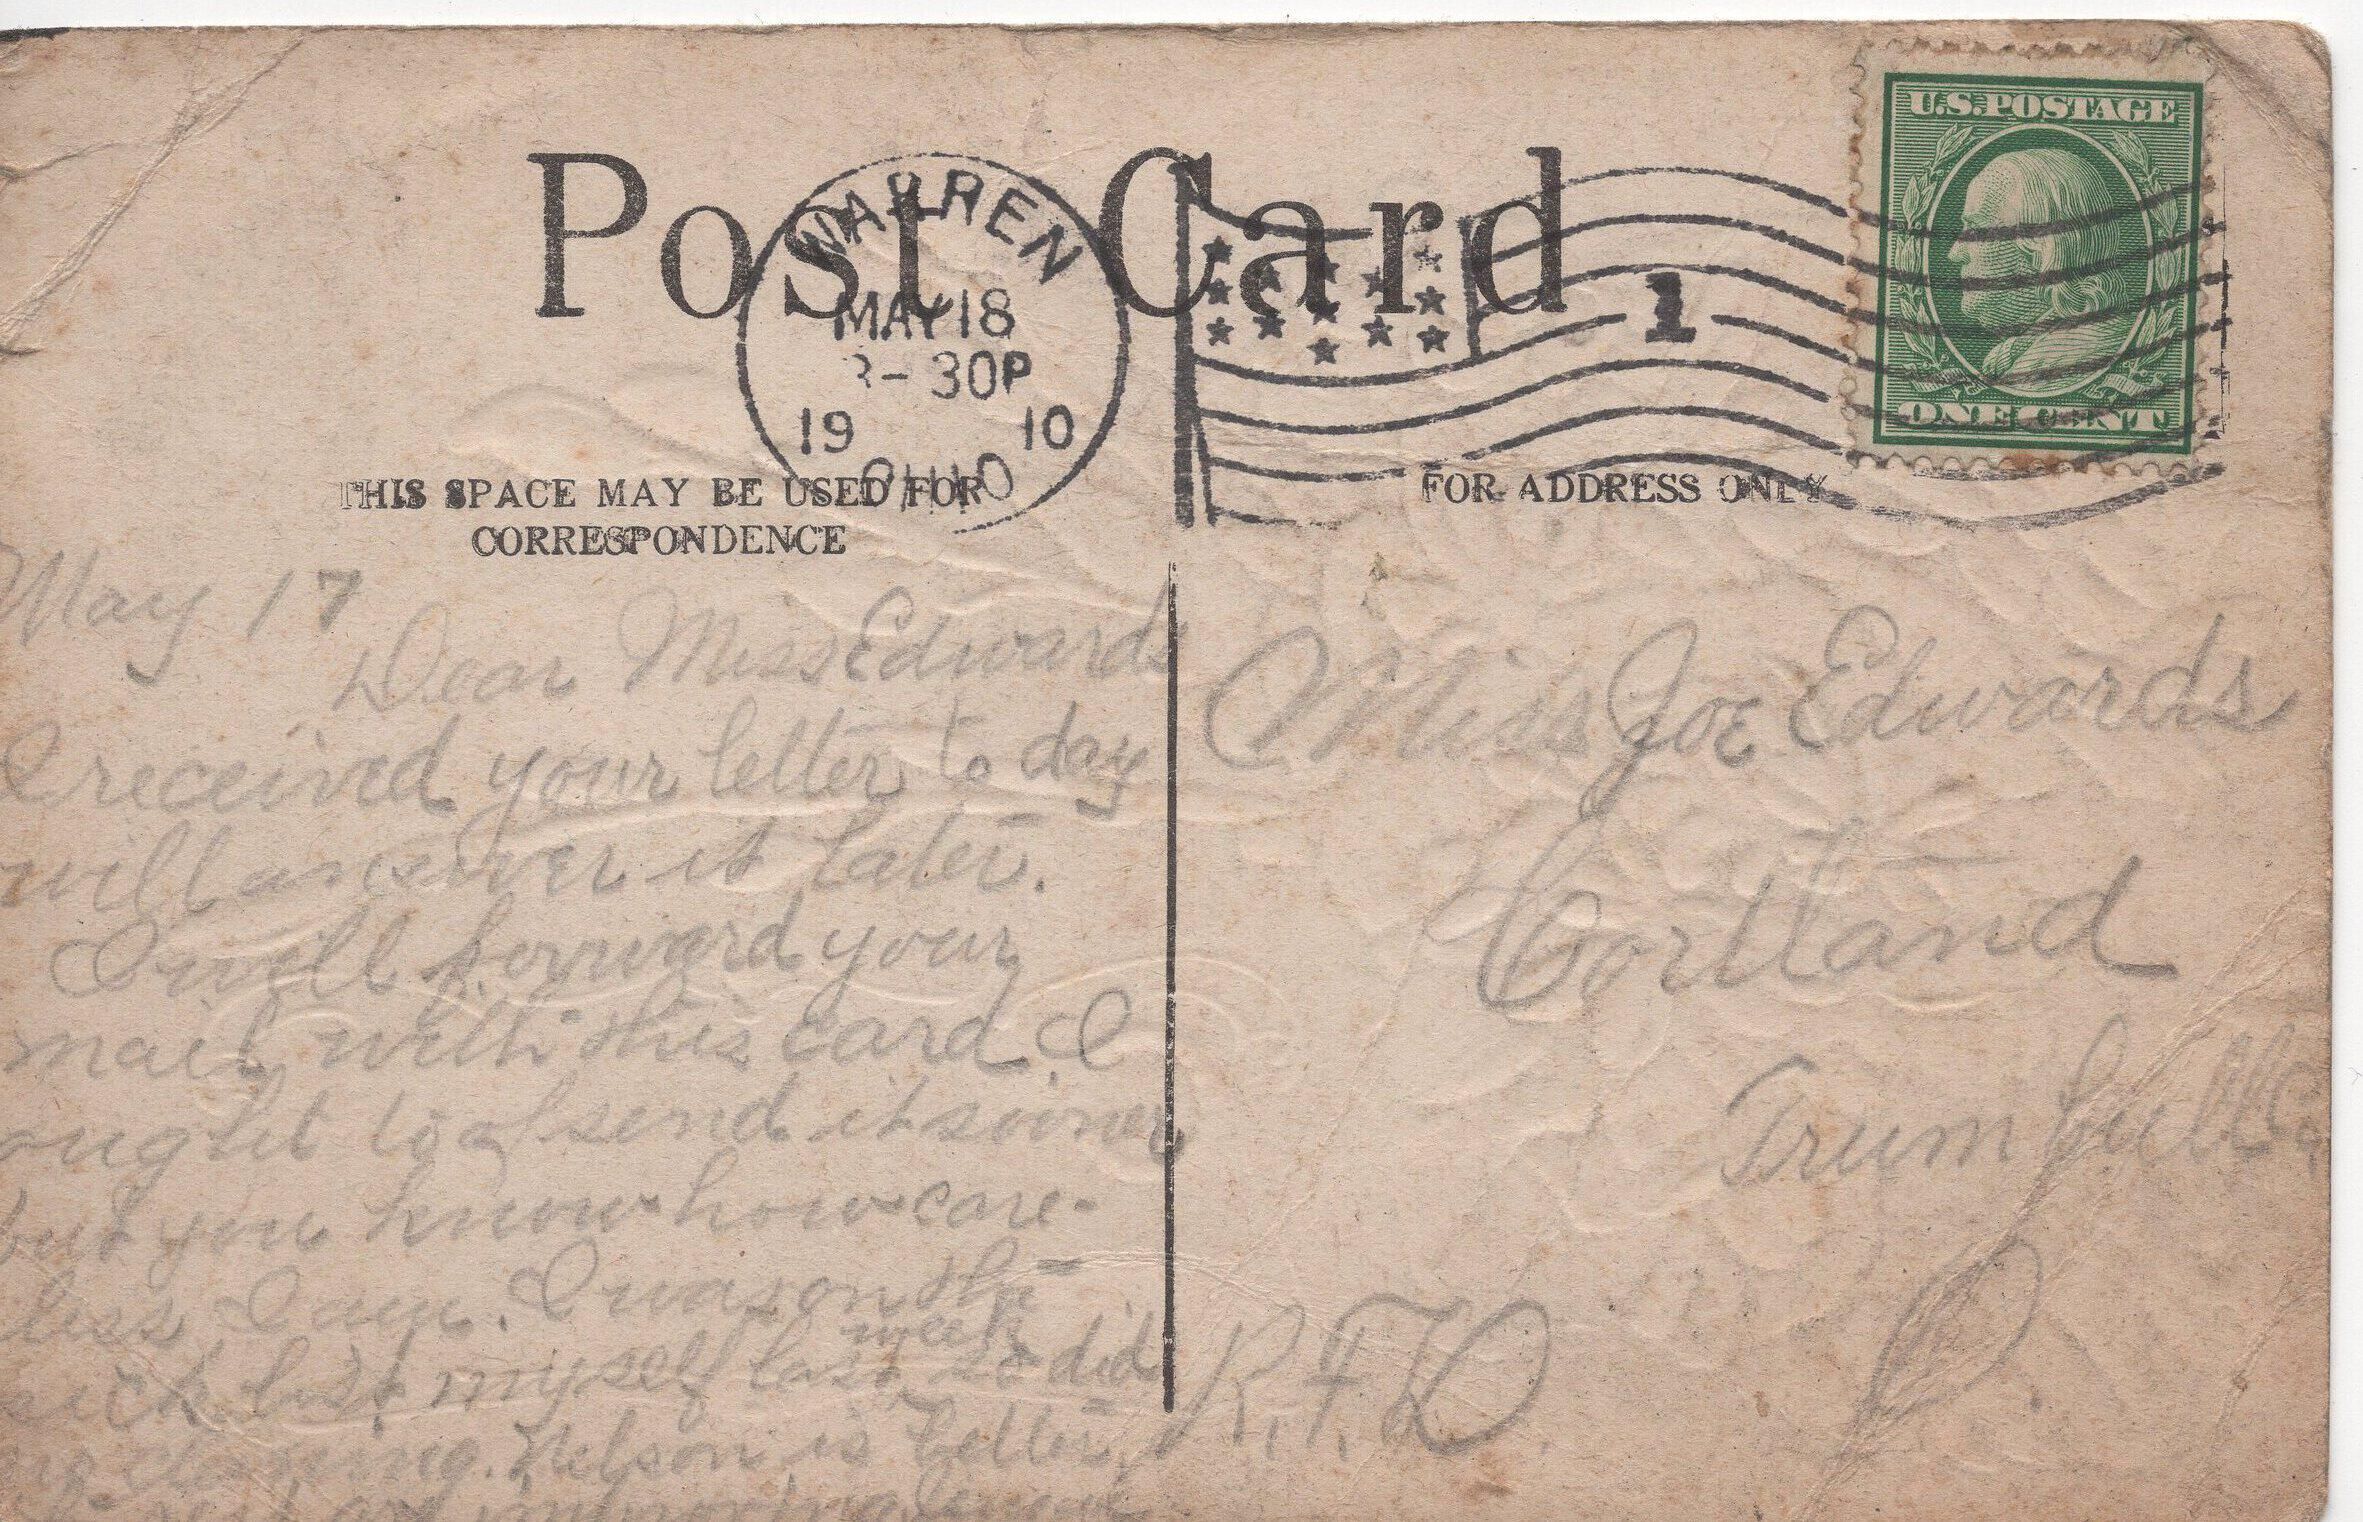 Post Card
WARREN
MAY 18
30P
19 10
OHIO
1
U.S. POSTAGE
ONE CENT
THIS SPACE MAY BE USED FOR
CORRESPONDENCE
FOR ADDRESS ONLY
May 17
Dear Miss Edwards
I received your letter to day
will answer it later.
I will forward your
mail with this card. I
ought to of send it sooner
but you know how care-
less I am. I was on the
sick list myself last week so did
no cleaning. Nelson is better,
rest are improving
Miss Joe Edwards
Cortland
Trumbull Co.
O.
R.F.D.